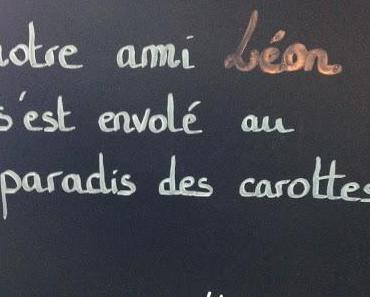 notre ami Léon
s'est envolé au
paradis des carottes